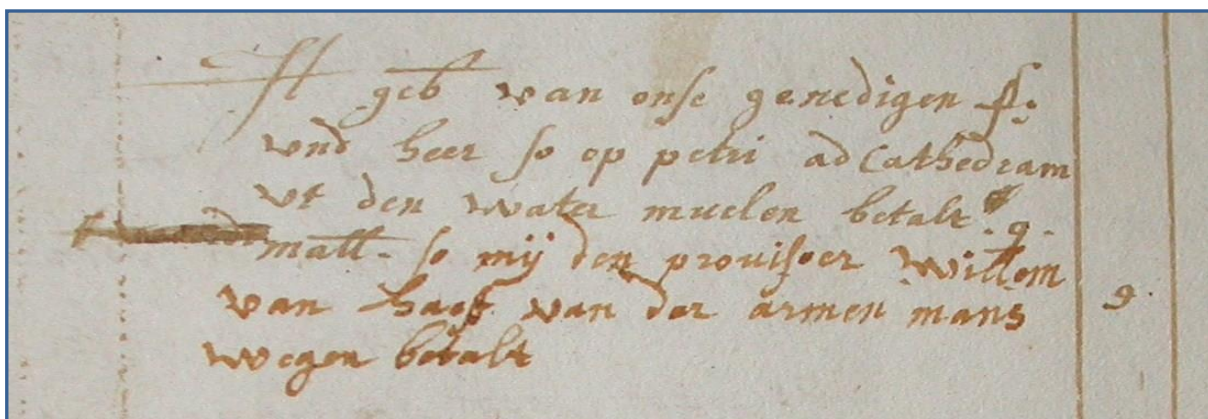 It geb van onse genedigen f.
vnd heer so op petri ad Cathedram
vt den water muelen betalt .9.
malt. so mij den prouisoer Willem
van haeff van der armen mans 9.
wegen betalt